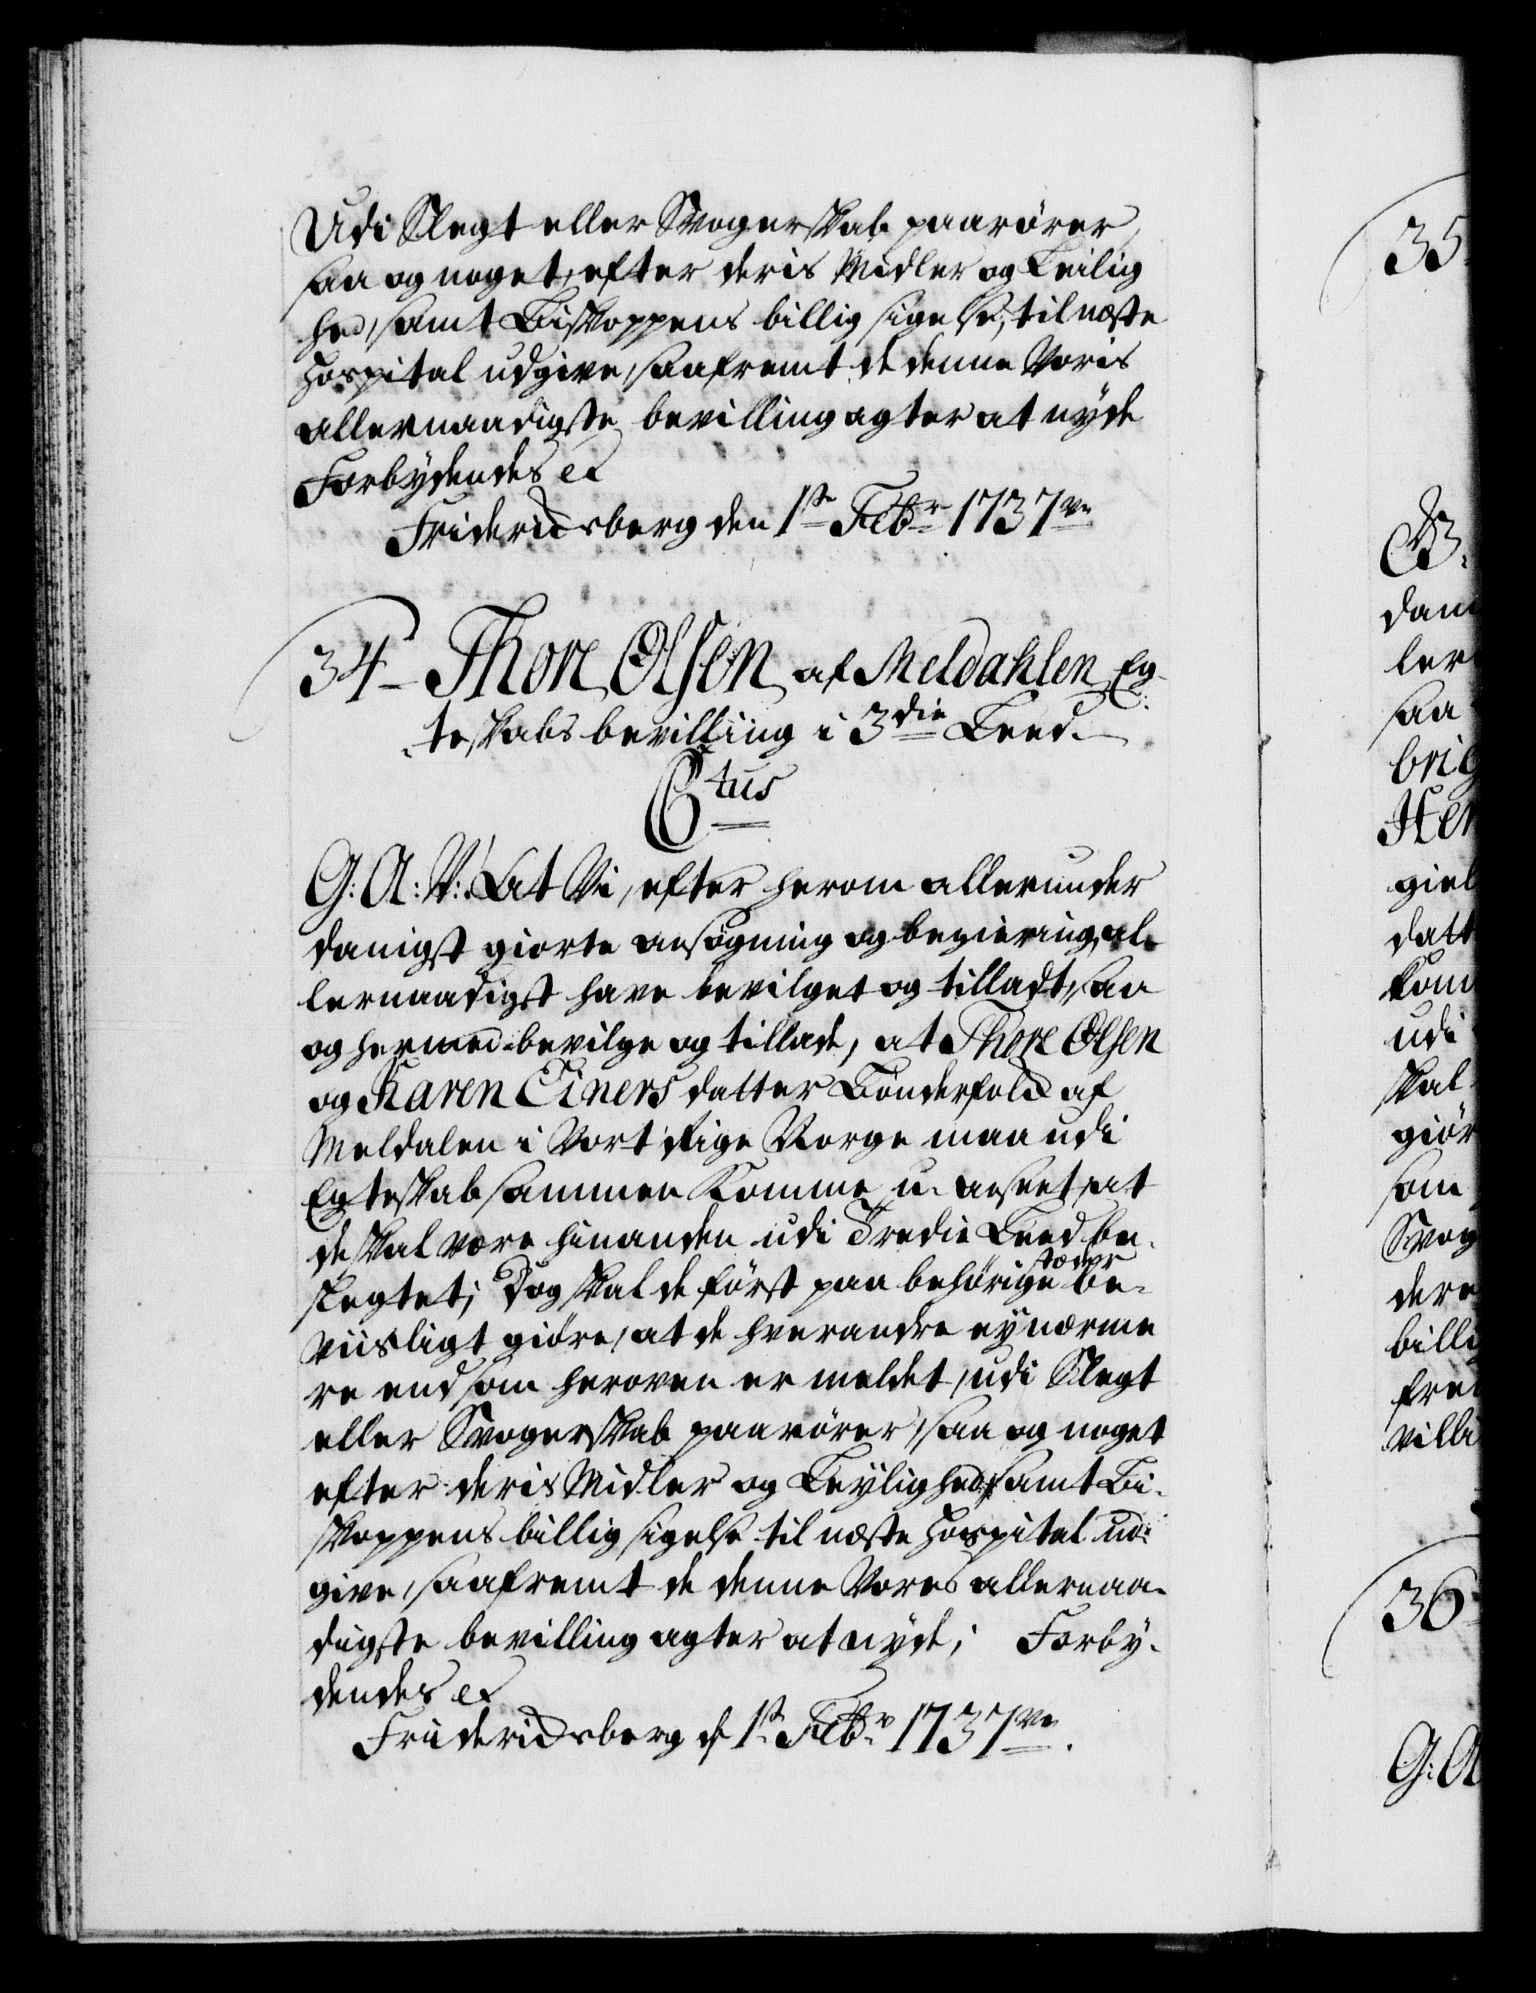 Udi Slegt eller Svogerskab paarører,
saa og noget, efter deris Midler og Leilig
hed, samt Biskoppens billig sigelse, til næste
Hospital udgive, saafremt de denne Voris
allernaadigste bevilling agter at nyde
Forbydendes et
Friderichsberg den 1ste Febr 1737ve
34 - Thore Olsen af Meldahlen Eg-
teskabs bevilling i 3die Leed.
Ctus
G: A: V: At Vi, efter herom allerunder
danigst giorte ansøgning og begiering, al-
lernaadigst have bevilget og tilladt, saa
og hermed bevilge og tillade, at Thore Olsen
og Karen Einers datter Bønderfolck af
Meldalen i Vort Rige Norge maa udi
Egteskab sammen komme, u-anseet, at
de skal være hinanden udi Tredie Leed be-
slegtet; Dog skal de først paa behørige stæder be-
viisligt giøre, at de hverandre ey nærme
re end som heroven er meldet, udi Slegt
eller Svogerskab paarører, saa og noget
efter deris Midler og Leylighed, samt Bi-
skoppens billig sigelse til næste Hospital ud-
give, saafremt de denne Vores allernaa-
digste bevilling agter at nyde; Forby-
dendes et
Friderichsberg d 1ste Febr 1737ve.
35
B.
dan
ler
saa
brig
Hen
giel
datt
kom
udi
skal
giør
som
Svog
dere
billi
fre
villi
36
G: A